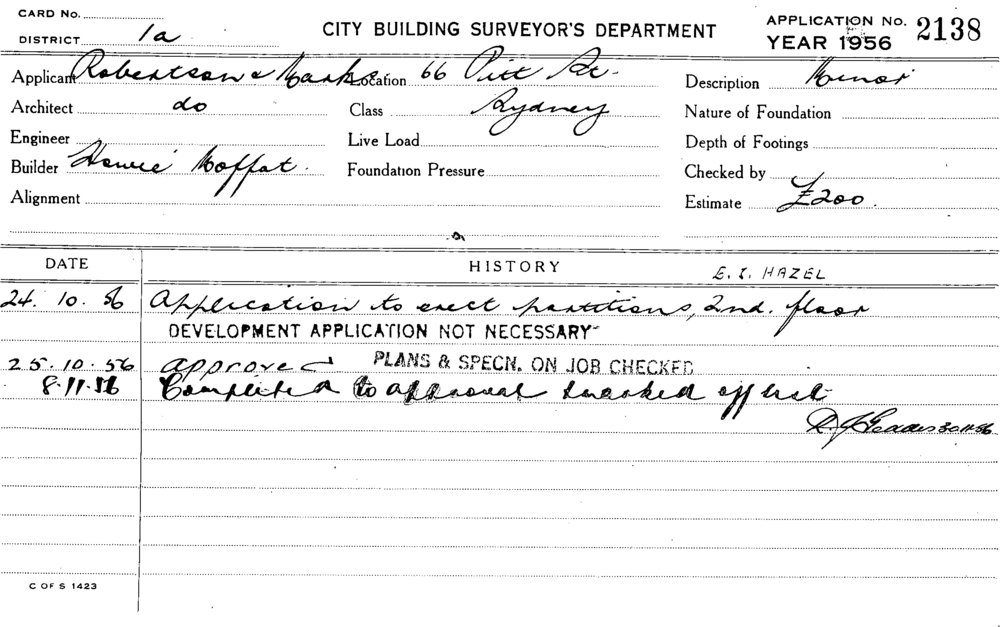 CARD No.
DISTRICT 1a
CITY BUILDING SURVEYOR'S DEPARTMENT
APPLICATION No. 2138
YEAR 1956
Applicant Robertson & Marks Location 66 Pitt St. Description Minor
Architect do Class Sydney Nature of Foundation
Engineer Live Load Depth of Footings
Builder Howie Moffat. Foundation Pressure Checked by
Alignment Estimate £200.
DATE HISTORY E. L. HAZEL
24. 10. 56 Application to erect partitions, 2nd. floor
DEVELOPMENT APPLICATION NOT NECESSARY
25.10.56 approved PLANS & SPECN. ON JOB CHECKED
8.11.56 Completed to approval & marked off list
30.11.56
C OF S 1423